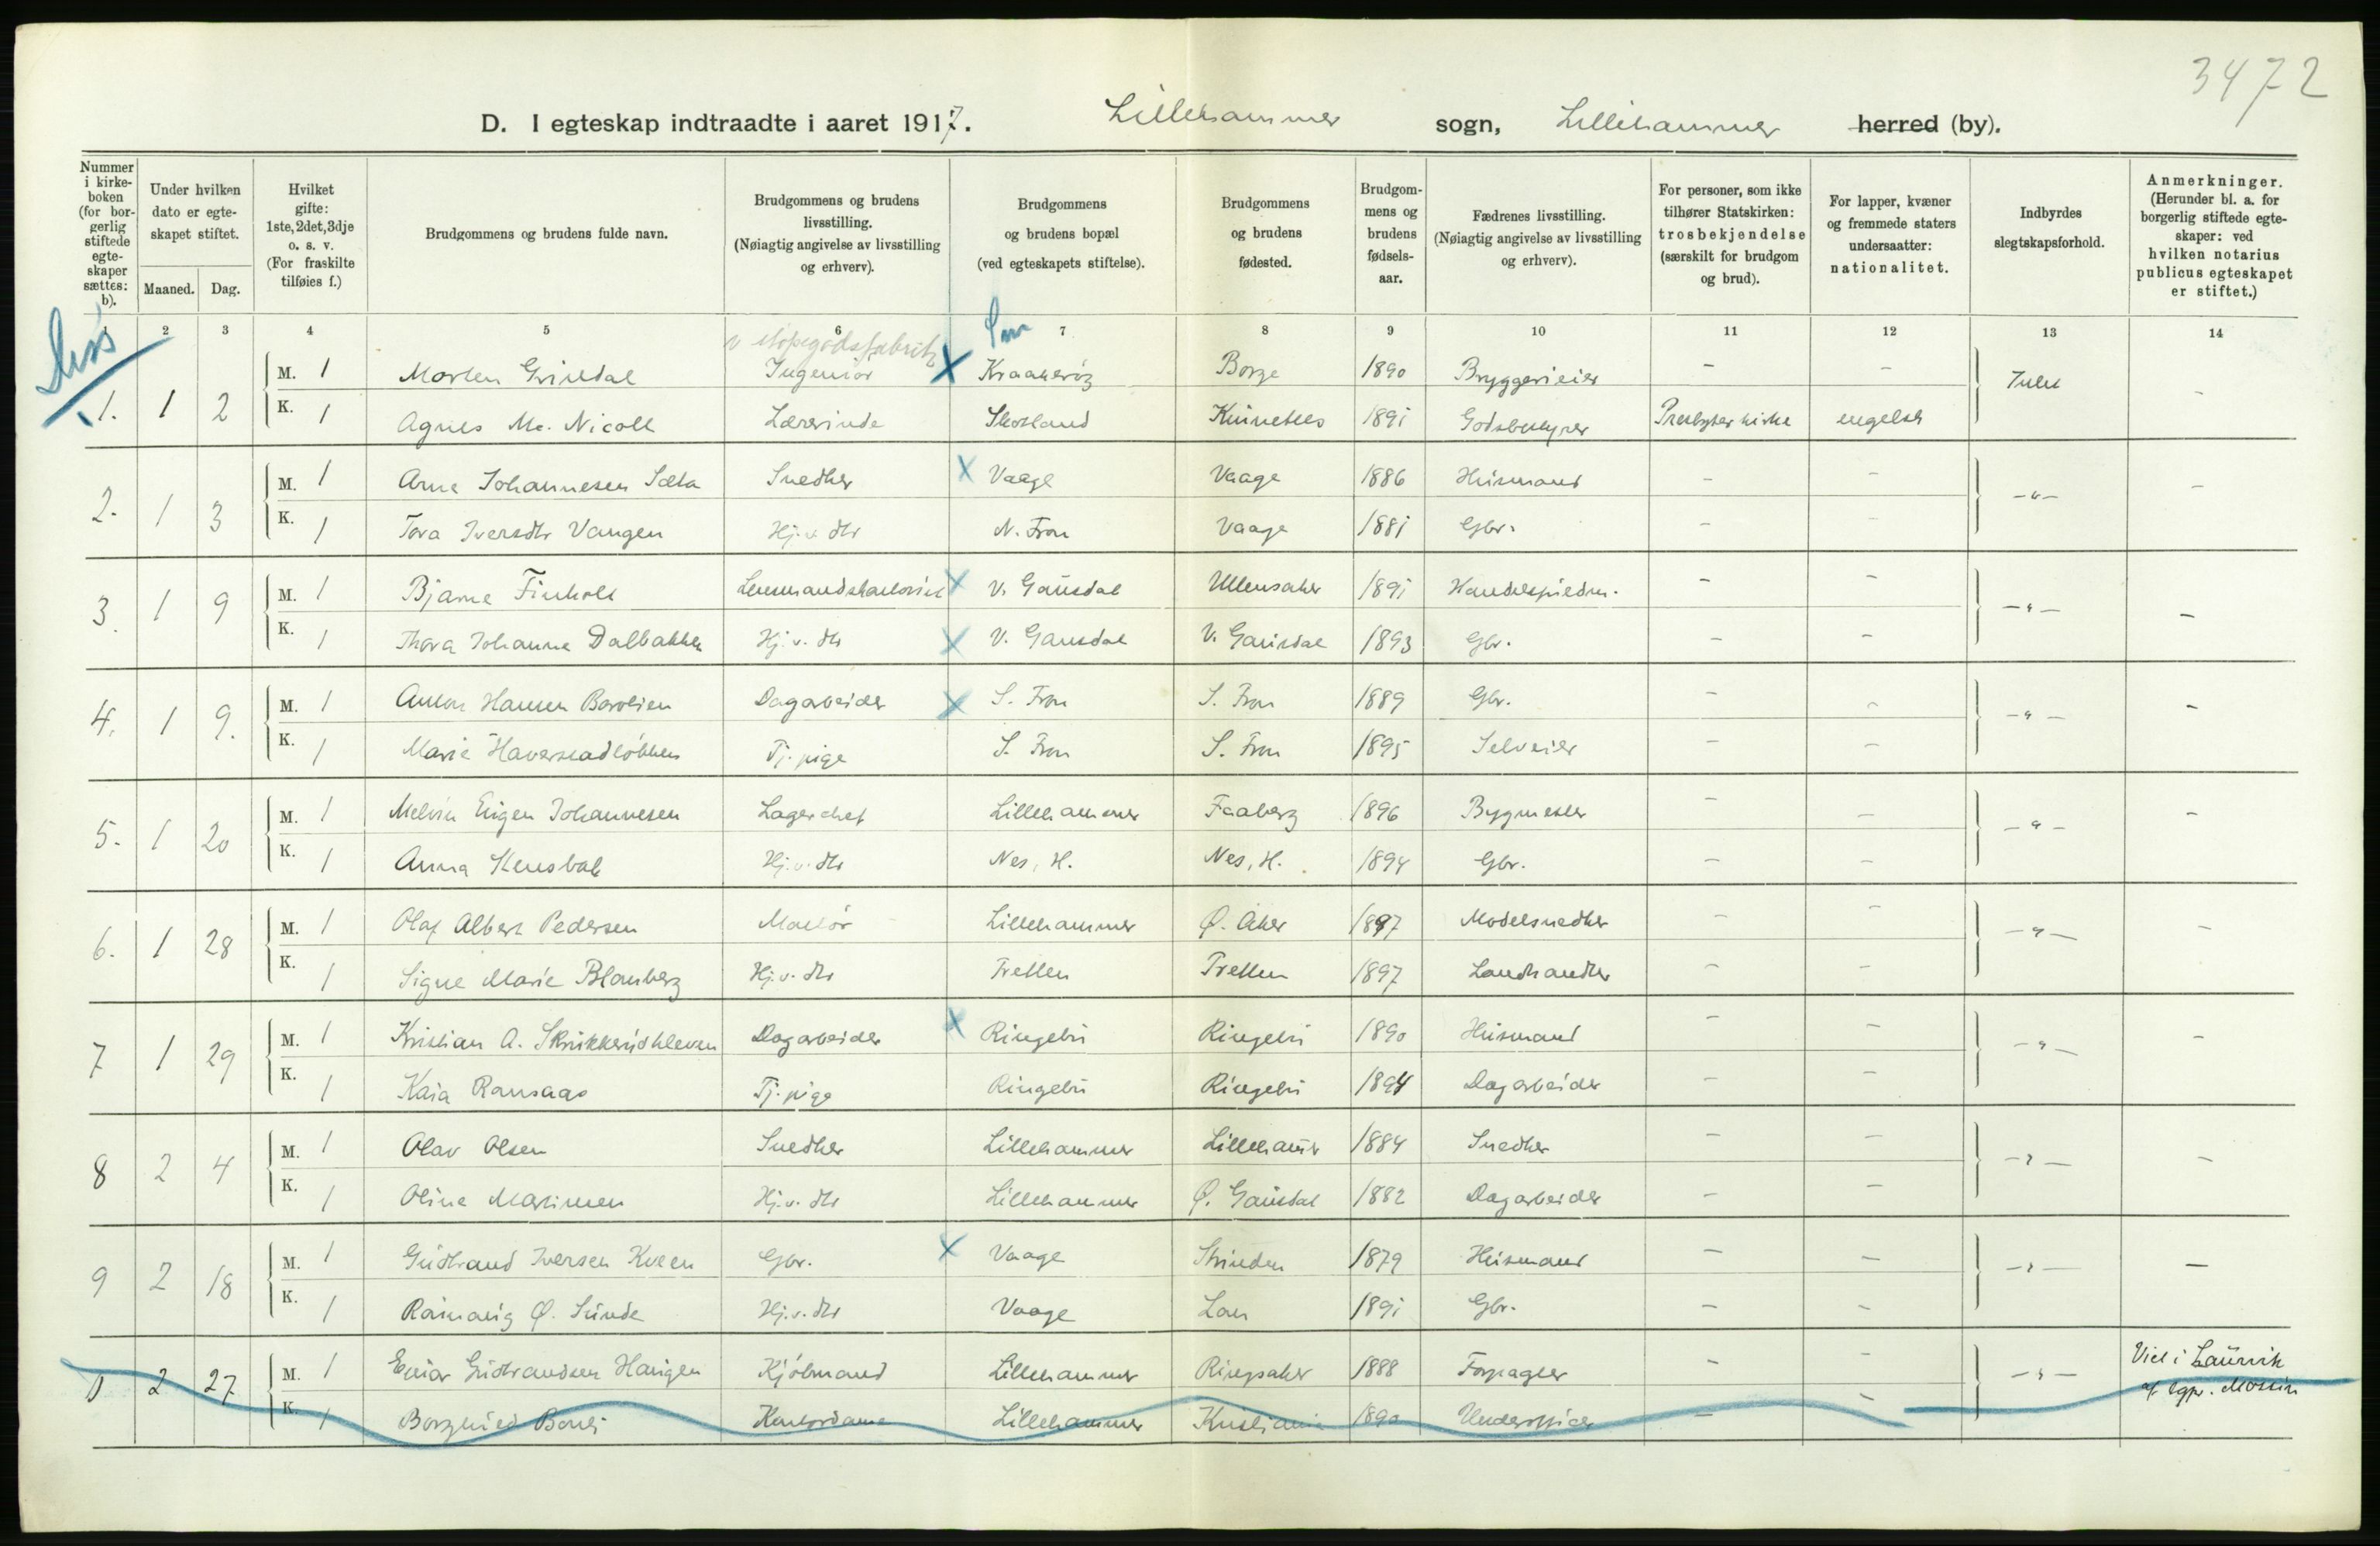 3472
D. I egteskap indtraadte i aaret 1917. Lillehammer sogn, Lillehammer herred (by).
Nummer i kirke- boken (for bor- gerlig stiftede egte- skaper sættes: b).
Under hvilken dato er egte- skapet stiftet.
Maaned. Dag.
Hvilket gifte: 1ste, 2det, 3dje o. s. v. (For fraskilte tilføies f.)
Brudgommens og brudens fulde navn.
Brudgommens og brudens livsstilling. (Nøiagtig angivelse av livsstilling og erhverv).
Brudgommens og brudens bopæl (ved egteskapets stiftelse).
Brudgommens og brudens fødested.
Brudgom- mens og brudens fødsels- aar.
Fædrenes livsstilling. (Nøiagtig angivelse av livsstilling og erhverv).
For personer, som ikke tilhører Statskirken: trosbekjendelse (særskilt for brudgom og brud).
For lapper, kvæner og fremmede staters undersaatter: nationalitet.
Indbyrdes slegtskapsforhold.
Anmerkninger. (Herunder bl. a. for borgerlig stiftede egte- skaper: ved hvilken notarius publicus egteskapet er stiftet.)
1 2 3 4 5 6 7 8 9 10 11 12 13 14
v støpegodsfabrik
M. 1 Morten Grindal Ingeniør x Kraakerøy Borge 1890 Bryggerieier – –
1. 1 2 Intet –
K. 1 Agnes Mc. Nicoll Lærerinde Skotland 1891 Godsbestyrer Presbyterkirke engelsk
M. 1 Arne Johannesen Sæta Snedker x Vaage Vaage 1886 Husmand – –
2. 1 3 –"– –
K. 1 Tora Iversdtr Vangen Hj. v. dtr N. Fron Vaage 1881 Gbr. – –
M. 1 Bjarne Finholt Lensmandskontorist x V. Gausdal Ullensaker 1891 – –
3. 1 9 –"– –
K. 1 Thora Johanne Dalbakken Hj. v. dtr x V. Gausdal V. Gausdal 1893 Gbr. – –
M. 1 Anton Hansen Barlien Dagarbeider x S. Fron S. Fron 1889 Gbr. – –
4. 1 9. –"– –
K. 1 Marie Haverstadløkken Tj. pige S. Fron S. Fron 1895 Selveier – –
M. 1 Melvin Eugen Johannesen Lagerchef Lillehammer Faaberg 1896 Bygmester – –
5. 1 20 –"– –
K. 1 Anna Hj. v. dtr Nes, H. Nes, H. 1894 Gbr. – –
M. 1 Olaf Albert Pedersen Lillehammer Ø. Aker 1897 Modelsnedker – –
6. 1 28 –"– –
K. 1 Signe Marie Blanberg Hj. v. dtr Tretten Tretten 1897 Landhandler – –
M. 1 Kristian A. Dagarbeider x Ringebu Ringebu 1890 Husmand – –
7 1 29 –"– –
K. 1 Kaia Ransaas Tj. pige Ringebu Ringebu 1894 Dagarbeider – –
M. 1 Olav Olsen Snedker Lillehammer Lillehamer 1884 Snedker – –
8 2 4 –"– –
K. 1 Oline Martinsen Hj. v. dtr Lillehammer Ø. Gausdal 1882 Dagarbeider – –
M. 1 Gudbrand Iversen Kveen Gbr. x Vaage 1879 Husmand – –
9 2 18 –"– –
K. 1 Ø. Sunde Hj. v. dtr Vaage Lom 1891 Gbr. – –
M. 1 Einar Gudbrandsen Haugen Kjølmand Lillehammer Ringsaker 1888 Forpagter – –
2 27 –"– Viet i Laurvik
K. 1 Borghild Kontordame Lillehammer Kristiania 1890 – –